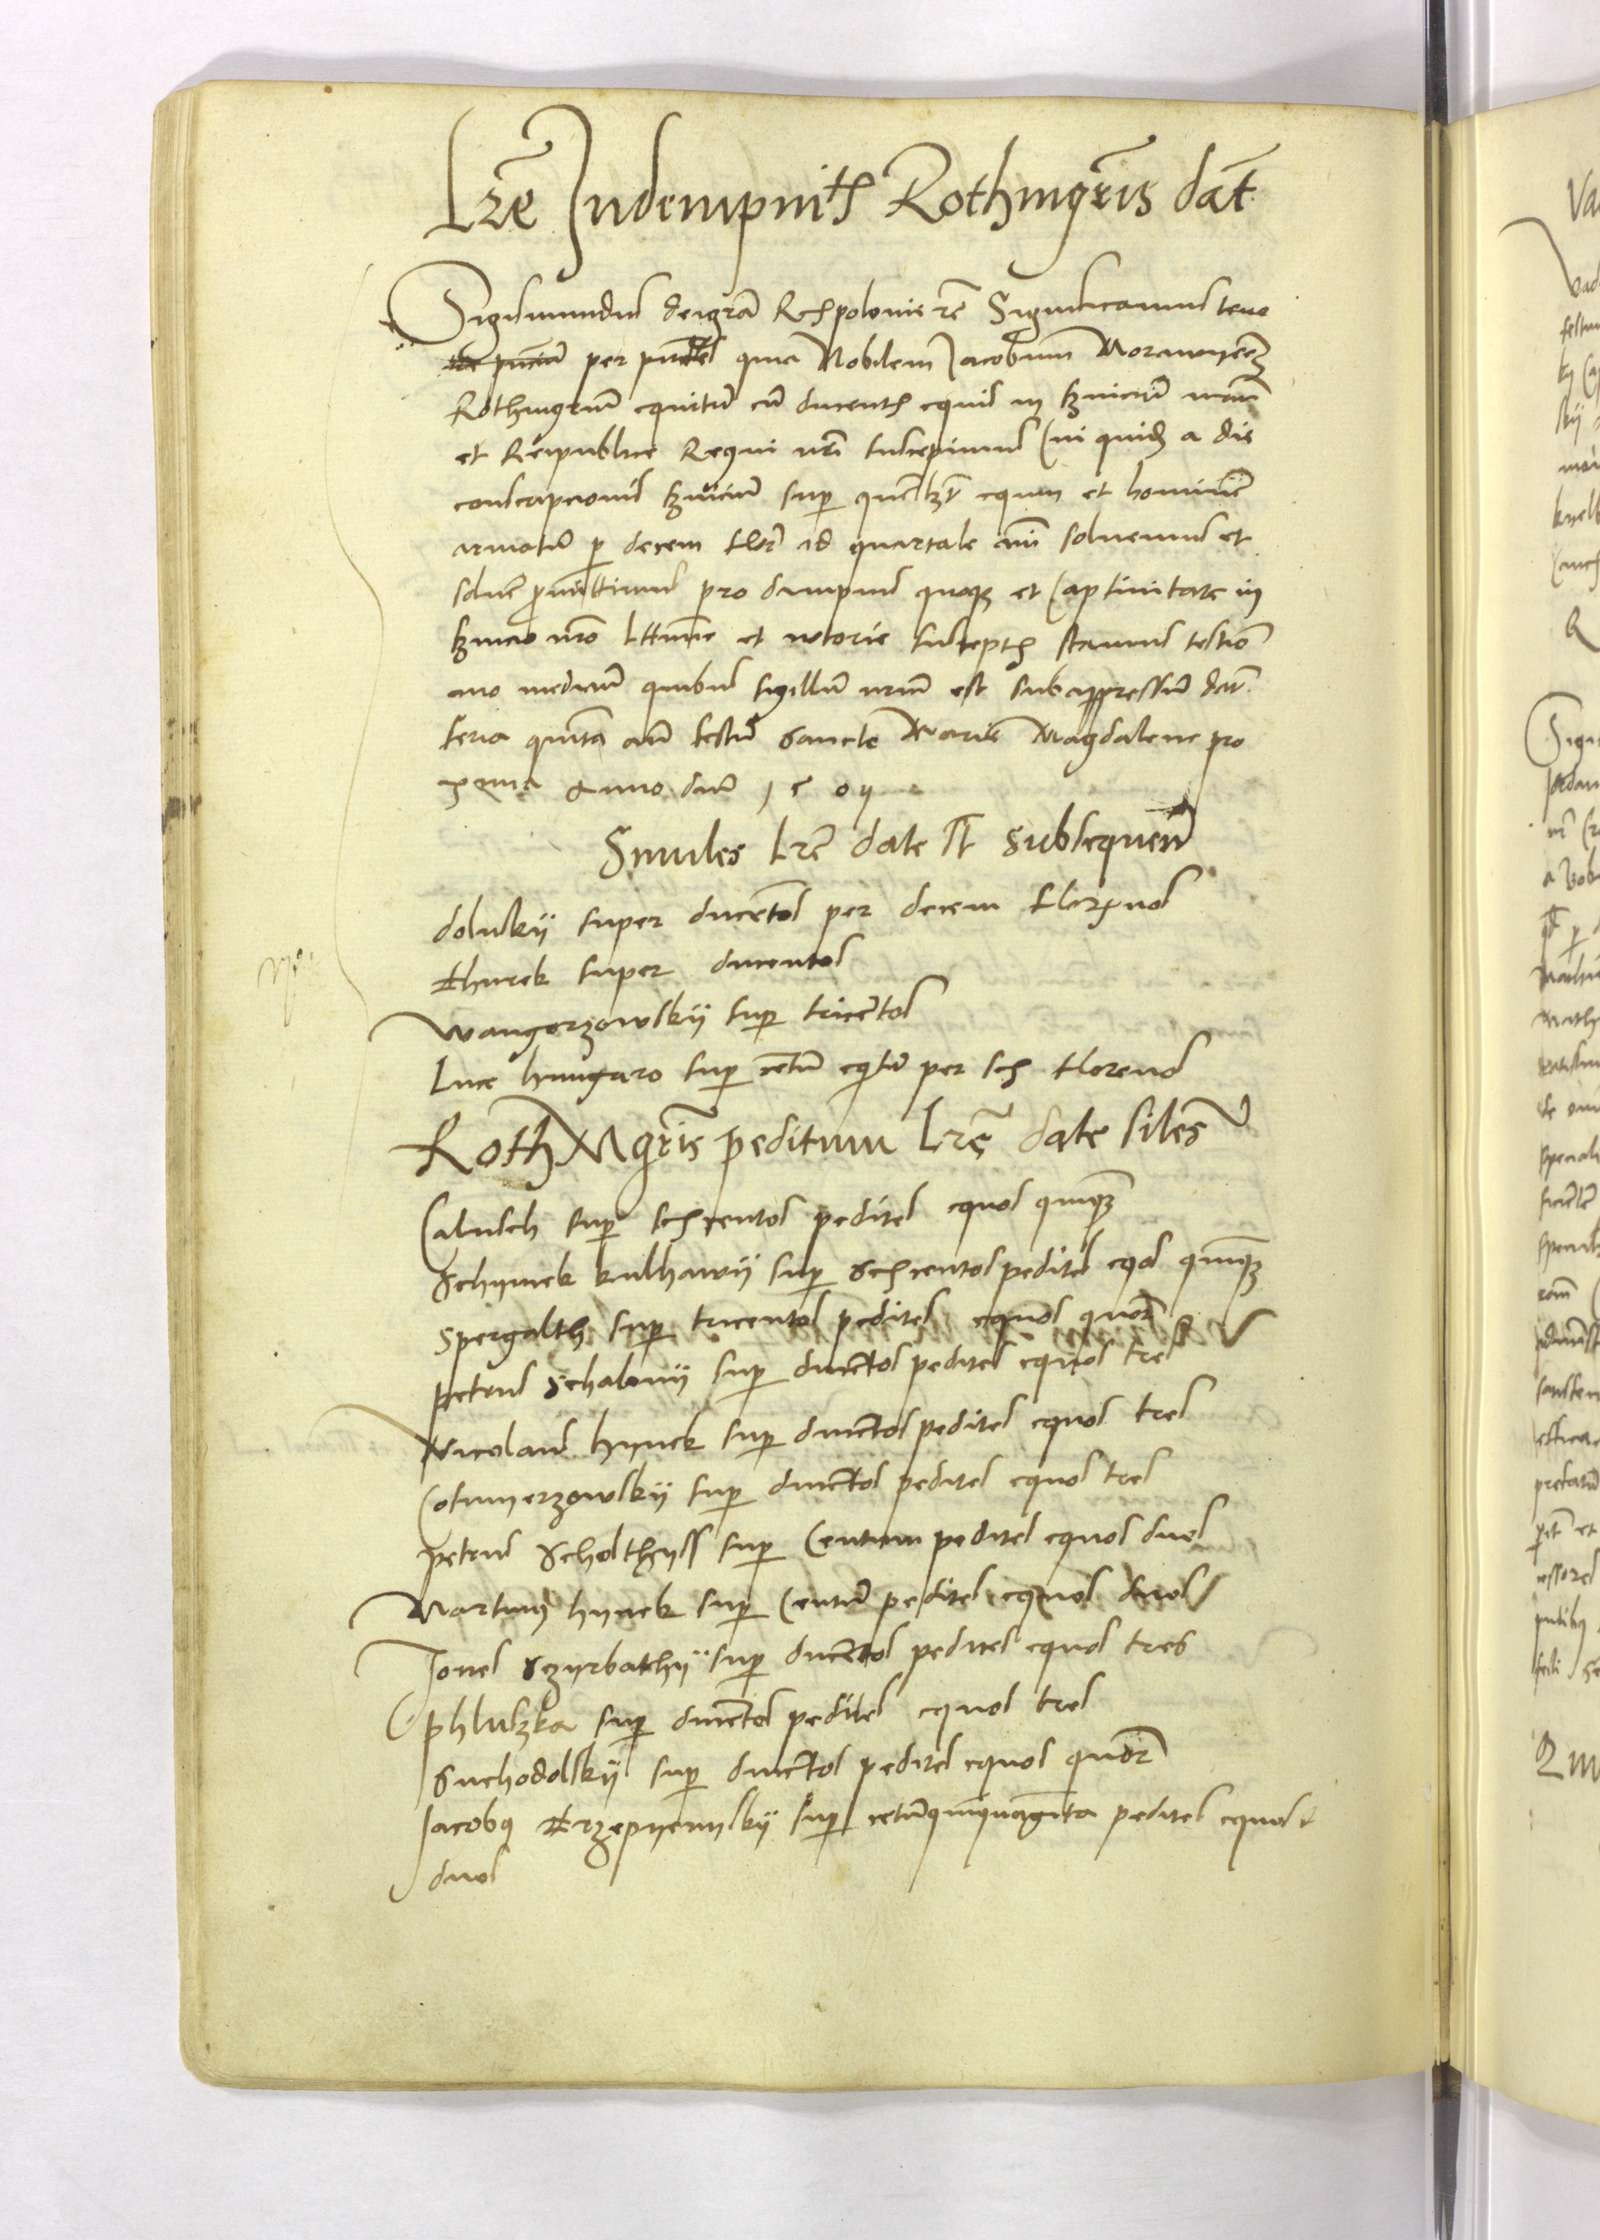 Lre Indempnitatis Rothmgris dat
Sigismundus dei gra Rex polonie etc Significamus teno
per pntes quia Nobilem Jacobum Morawyecz
Rothmgrum equitum cum ducentis equis in servicium nrum
et Reipublice Regni nri suscepimus Cui quidem a die
conscripcionis servicium super quemlibet equum et hominem
armatum per decem flor ad quartale anni solvemus et
solvere promittimus pro dampnis quoque et Captivitate in
servicio nro legittime et notorie susceptis
mediante quibus sigillum nrum est subappressum dat
feria quinta ante festum sancte Marie Magdalene pro
xima Anno dni 1507
Similes Lre date st subsequen
doluskij super ducentos per decem florenos
thurek super ducentos
Wangorzowskij super tricentos
Luce hungaro super centum equitum per sex florenos
Roth Mgris peditum Lre date siles
Calusch super sexcentos pedites equos quinque
Schymek kulhawij super sexcentos pedites equos quinque
Spergalth super tricentos pedites equos quatuor
petrus Schalonij super ducentos pedites equos tres
Nicolaus hynek super ducentos pedites equos tres
Cosmyerzowskij super ducentos pedites equos tres
petrus Scholthyss super Centum pedites equos duos
Martinus hynek super Centum pedites equos duos
Jones Szyrbathij super ducentos pedites equos tres
phluszka super ducentos pedites equos tres
Suchodolskij super ducentos pedites equos quatuor
Jacobus trzepyenskij super centum quinquaginta pedites equos
duos